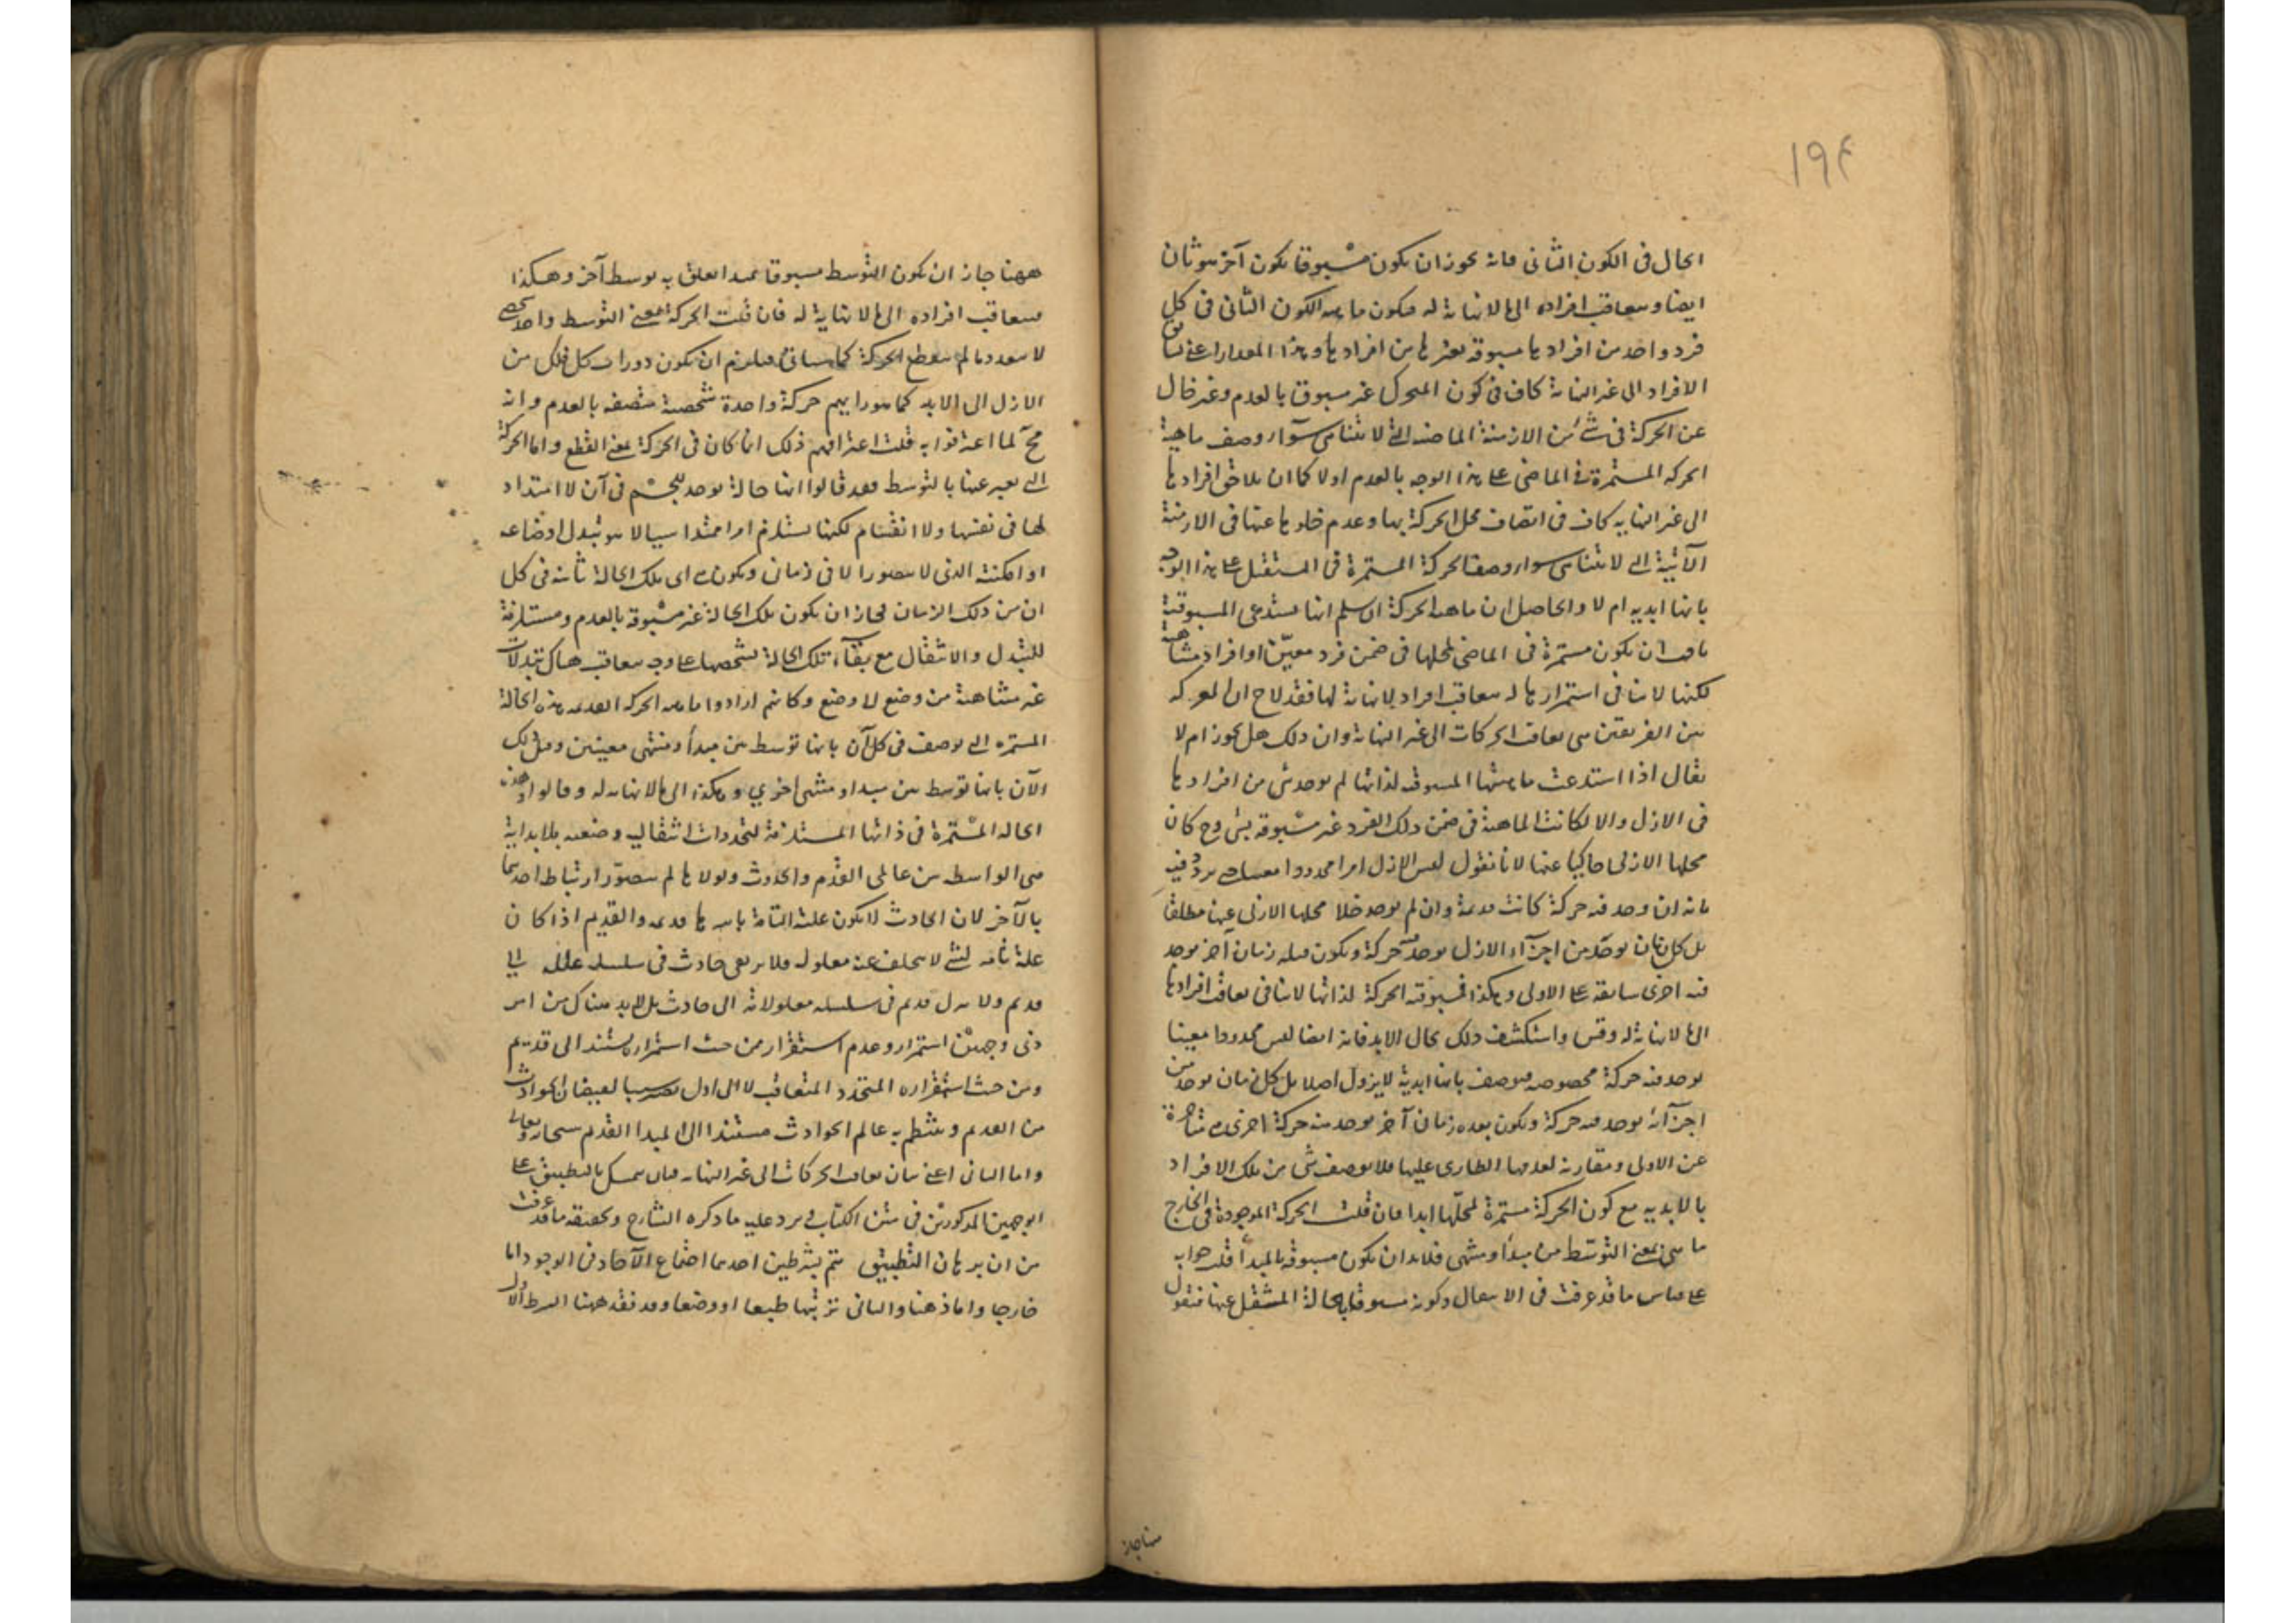 ١٩٤
الحال فى الكون الثانى فانه يجوز ان يكون مسبوقا بكون آخر هو ثان
ايضا ويتعاقب افراده الى ما لا نهاية له فيكون ماهية الكون الثانى فى كل
فرد واحد من افرادها مسبوقة بغيرها من افرادها وهذا المقدار اعنى
الافراد الى غير النهاية كاف فى كون المتحرك غير مسبوق بالعدم وغير خال
عن الحركة فى شئ من الازمنة الماضية التى لا تتناهى سوآء وصف ماهية
الحركة المستمرة فى الماضى على هذا الوجه بالعدم اولا كما ان تلاحق افرادها
الى غير النهاية كاف فى اتصاف محل الحركة بها وعدم خلوها عنها فى الازمنة
الآتية التى لا تتناهى سواء وصف الحركة المستمرة فى المستقبل على هذا الوجه
بانها ابدية ام لا والحاصل ان ماهية الحركة ان سلم انها تستدعى المسبوقية
ان تكون مستمرة فى الماضى لمحلها فى ضمن فرد معيّن او افراد متناهية
لكنها لا تنافى استمرارها له بتعاقب افراد لا نهاية لها فقد لاح ان المعركة
بين الفريقين هى تعاقب الحركات الى غير النهاية وان ذلك هل يجوز ام لا
يقال اذا استدعت ماهيتها المسبوقية لذاتها لم يوجد شئ من افرادها
فى الازل والا لكانت الماهية فى ضمن ذلك الفرد غير مسبوقة بشئ وح كان
محلها الازلى خاليا عنها لانا نقول ليس الازل امرا محدودا معينا
بانه ان وجد فيه حركة كانت قديمة وان لم يوجد خلا محلها الازلى عنها مطلقا
بل كل زمان يوجد من اجزآء الازل يوجد فيه حركة ويكون قبله زمان آخر يوجد
فيه اخرى سابقة على الاولى وهكذا فمسبوقية الحركة لذاتها لا تنافى تعاقب افرادها
الى ما لا نهاية له وقس واستكشف ذلك بحال الابد فانه ايضا ليس محدودا معينا
يوجد فيه حركة مخصوصة فيوصف بانها ابدية لا يزول اصلا بل كل زمان يوجد من
اجزآئه يوجد فيه حركة ويكون بعده زمان آخر يوجد فيه حركة اخرى متاخرة
عن الاولى ومقارنة لعدمها الطارى عليها فلا يوصف شئ من تلك الافراد
بالابدية مع كون الحركة مستمرة لمحلّها ابدا فان قلت الحركة الموجودة فى الخارج
ما هى بمعنى التوسّط بين مبدأ ومنتهى فلابد ان يكون مسبوقة بالمبدأ قلت جوابه
على قياس ما قد عرفت فى الانتقال وكونه مسبوقا بالحالة المنتقل عنها فنقول
ههنا جاز
ههنا جاز ان يكون التوسط مسبوقا بمبدا تعلق به توسط آخر وهكذا
يتعاقب افراده الى ما لا نهاية له فان قلت الحركة بمعنى التوسط واحد شخصى
لا يتعدد ما لم ينقطع الحركة كما سيأتى فيلزم ان يكون دورات كل فلك من
الازل الى الابد كما هو رايهم حركة واحدة شخصية متصفة بالعدم وانه
مح لما اعترفوا به قلت اعترافهم ذلك انما كان فى الحركة بمعنى القطع واما الحركة
التى يعبر عنها بالتوسط فقد قالوا انها حالة توجد للجسم فى آن لا امتداد
لها فى نفسها ولا انقسام لكنها تستلزم امرا ممتدا سيالا هو تبدل اوضاعه
او امكنته الذى لا يتصور الا فى زمان ويكون اى تلك الحالة ثابتة فى كل
ان من ذلك الزمان فجاز ان يكون تلك الحالة غير مسبوقة بالعدم ومستلزمة
للتبدل والانتقال مع بقآء تلك الحالة بشخصها على وجه يتعاقب هناك تبدلات
غير متناهية من وضع لا وضع وكانهم ارادوا بماهية الحركة القديمة هذه الحالة
المستمرة التى توصف فى كل آن بانها توسط بين مبدأ ومنتهى معينين وقبل ذلك
الآن بانها توسط بين مبدا ومنتهى اخرى وهكذا الى ما لا نهاية له وقالوا وهذه
الحالة المستمرة فى ذاتها المستلزمة لتجددات انتقالية وضعية بلا بداية
هى الواسطة بين عالمى القدم والحدوث ولولاها لم يتصوّر ارتباط احدهما
بالآخر لان الحادث لا يكون علته التامة باسرها قديمة والقديم اذا كان
علة تامة لشئ لا يتخلف عنه معلوله فلا يرتقى حادث فى سلسلة علله الى
قديم ولا ينزل قديم فى سلسلة معلولاته الى حادث بل لابد هناك من امر
ذى وجهين استمرار وعدم استقرار من حيث استمراره يستند الى قديم
ومن حيث استقراره المتجدد المتعاقب لا الى اول يصير سببا لفيضان الحوادث
من القديم وينتظم به عالم الحوادث مستندا الى المبدا القديم سبحانه وتعالى
واما الثانى اعنى بيان تعاقب الحركات الى غير النهاية فان تمسك بالتطبيق على
الوجهين المذكورين فى متن الكتاب يرد عليه ما ذكره الشارح وتحقيقه ما قد عرفت
من ان برهان التطبيق يتم بشرطين احدهما اجتماع الآحاد فى الوجود اما
خارجا واما ذهنا والثانى ترتبها طبعا او وضعا وقد فقد ههنا الشرط الاول